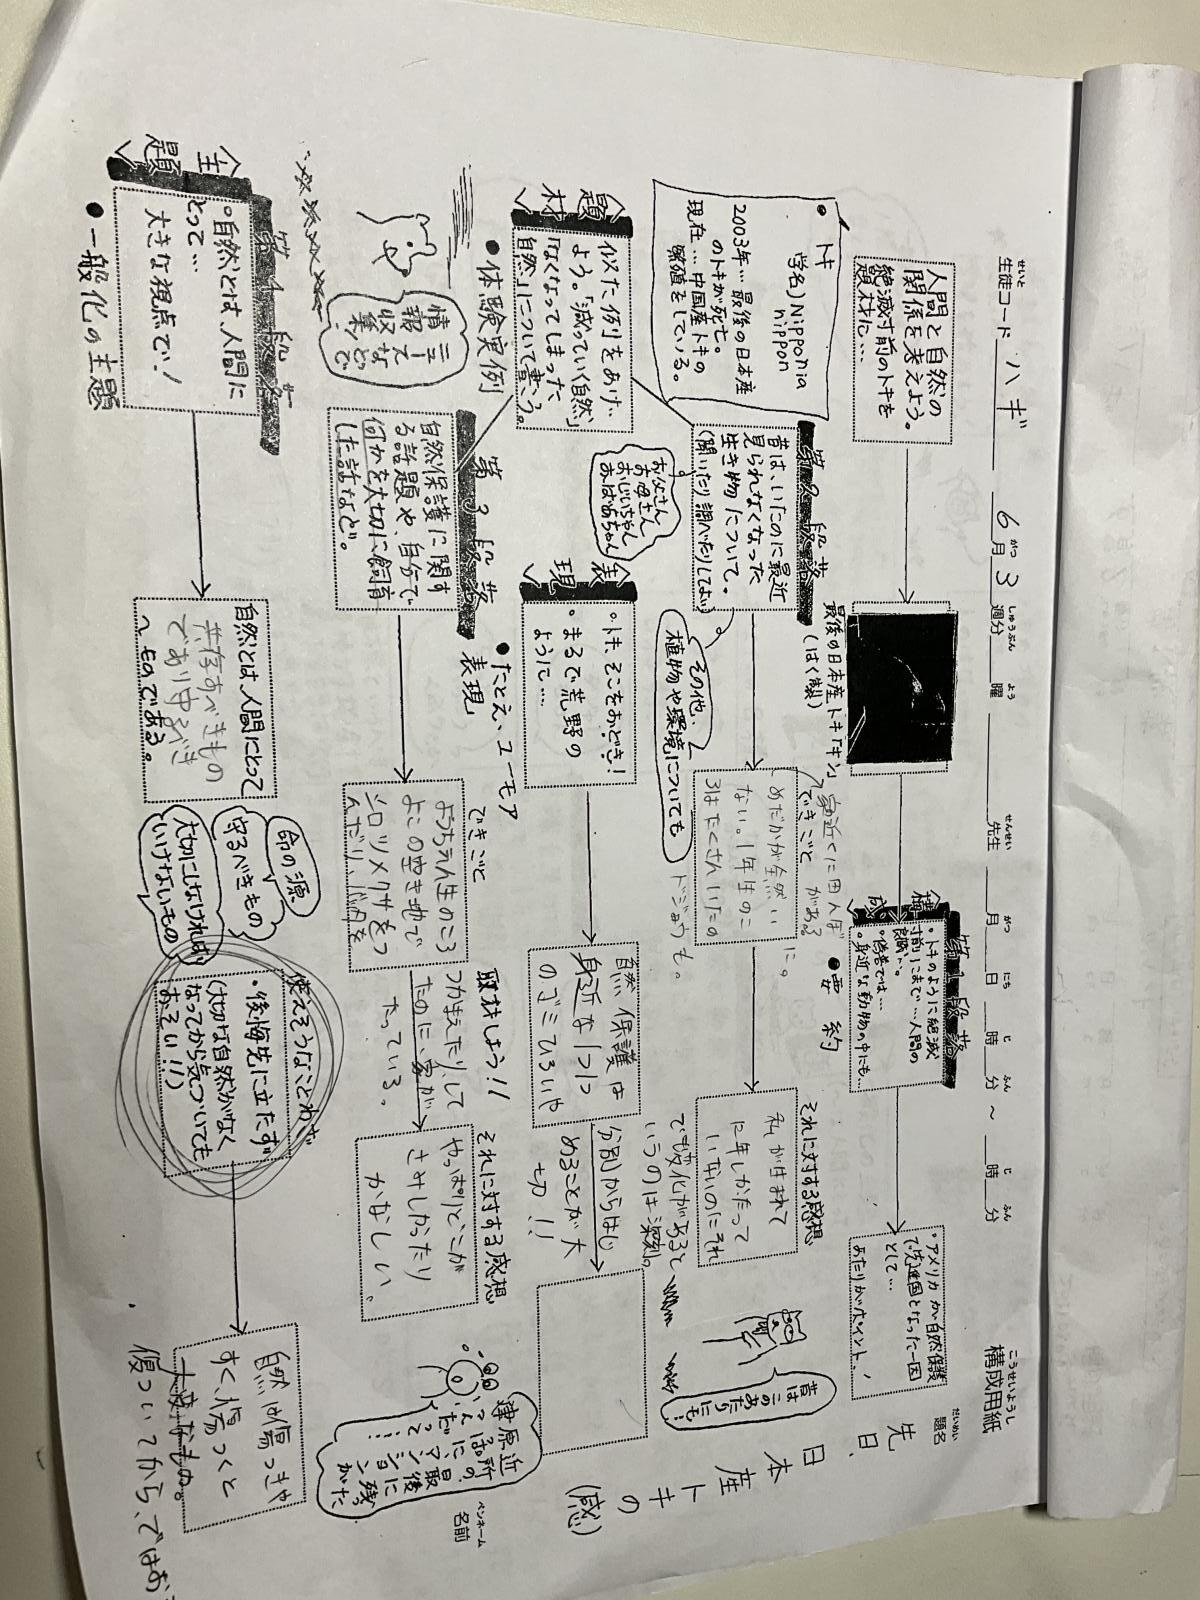 生徒コード ハギ 6月3週分 曜 先生 月 日 時 分 ~ 時 分
せいと がつ しゅうぶん よう せんせい がつ にち じ ふん じ ふん
こうせいようし
構成用紙
だいめい
題名
先日、
日本産トキの
(感)
人間と自然の
関係を考えよう。
絶滅寸前のトキを
題材に…
最後の日本産トキ「キン」
(はく製)
<構成>
第1段落
・トキのように絶滅
寸前にまで…人間の
・身近な動物の中にも…
・アメリカが自然保護
で先進国となった一因
として…
あたりがポイント!
・トキ
学名)Nipponia
nippon
2003年…最後の日本産
のトキが死亡。
現在…中国産トキの
繁殖をしている。
第2段落
昔は、いたのに最近
見られなくなった
生き物について。
(聞いたり調べたりしてよい)
お父さん
お母さん
おじいちゃん
おばあちゃん
その他…
植物や環境についても
家近くに田んぼ
がある
できごと
めだかが全然い
ない。1年生のこ
ろはたくさんいたの
に。
ドジョウも。
●要約
それに対する感想
私が生まれて
12年しかたって
いないのにそれ
でも変化があると
いうのは深刻。
昔は
このあたりにも!
<題材>
似た例をあげ
よう。「減っていく自然」
「なくなってしまった
自然」について書こう。
●体験実例
<表現>
・トキ、そこをおどき!
・まるで荒野の
ように…
●たとえ、ユーモア
表現
自然保護は
身近な1つ1つ
のゴミひろいや
分別からはじ
めることが大
切!!
ニュースなどで
情報収集!
第3段落
自然保護に関す
る話題や、自分で
何かを大切に飼育
した話など。
できごと
ようちえん生のころ
よこの空き地で
シロツメクサをつ
んだり、バッタを
取材しよう!!
つかまえたりして
たのに、家が
たっている。
それに対する感想
やっぱりどこか
さみしかったり
かなしい。
ペンネーム
名前
<主題>
第4段落
・自然とは、人間に
とって…
大きな視点で!
●一般化の主題
自然とは、人間にとって
共存すべきもの
であり守るべき
~ものである。
命の源
守るべきもの
大切にしなければ
いけないもの
使えそうなことわざ
・後悔先に立たず
(大切な自然がなく
なってから気づいても
おそい!!)
自然は傷つきや
すく、傷つくと
大変なもの。
傷ついてから、ではおそ